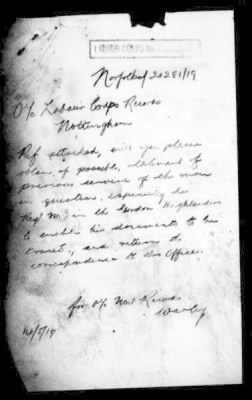 LABOUR CORPS
Norfolks/20281/19
O/c Labour Corps Records
Nottingham
Ref attached, will you please
obtain if possible, statement of
previous service of the man
in question, especially his
Regt No. in the Gordon Highlanders
to enable his documents to be
traced, and return the
correspondence to this Office.
for O/c No 1 Records
Warley